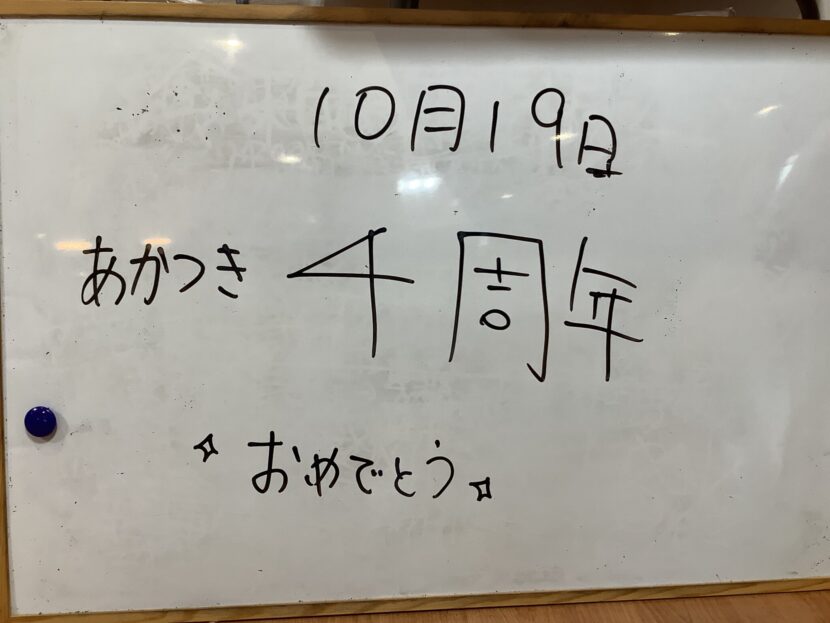 10月19日
あかつき 4周年
おめでとう